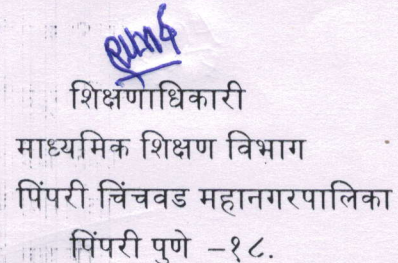 शिक्षणाधिकारी
माध्यमिक शिक्षण विभाग
पिंपरी चिंचवड महानगरपालिका
पिंपरी पुणे –१८.